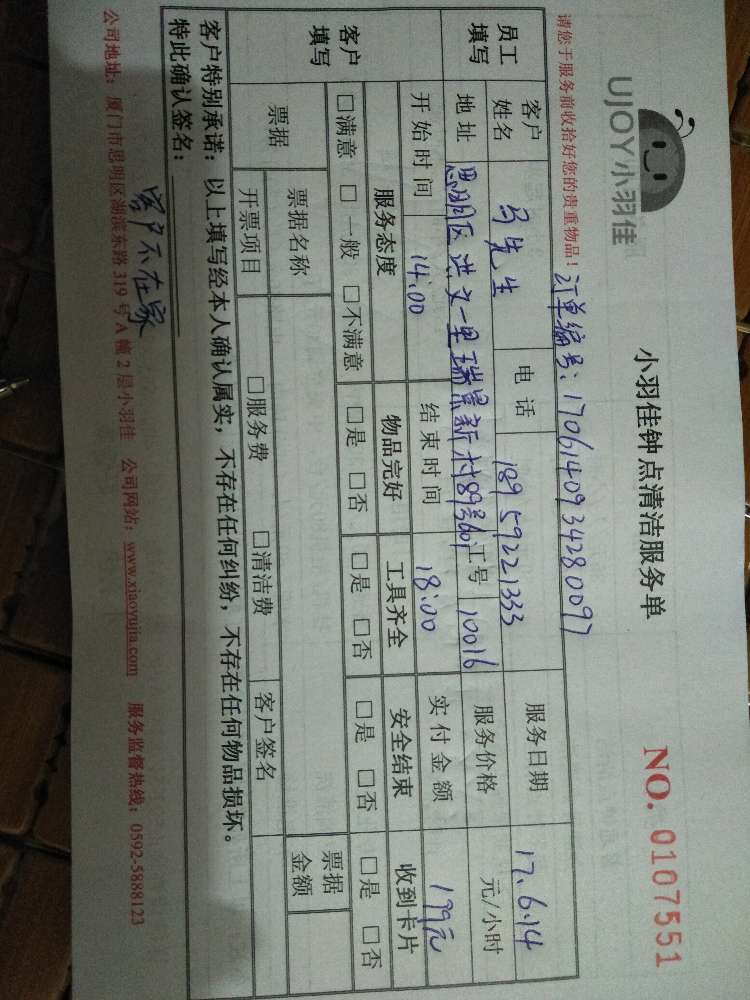 UJOY小羽佳
小羽佳钟点清洁服务单
NO. 0107551
请您于服务前收拾好您的贵重物品！
订单编号：1706140934280097
员工填写
客户姓名 马先生 电话 18959221333 服务日期 17.6.14
地址 思明区洪文一里瑞景新村89号 工号 10016 服务价格 元/小时
开始时间 14:00 结束时间 18:00 实付金额 199元
客户填写
服务态度 物品完好 工具齐全 安全结束 收到卡片
□满意 □一般 □不满意 □是 □否 □是 □否 □是 □否 □是 □否
票据 票据名称 票据金额
开票项目 □服务费 □清洁费 客户签名
客户特别承诺：以上填写经本人确认属实，不存在任何纠纷，不存在任何物品损坏。
特此确认签名：
客户不在家
公司地址：厦门市思明区湖滨东路319号A幢2层小羽佳 公司网站：www.xiaoyujia.com 服务监督热线：0592-5888123